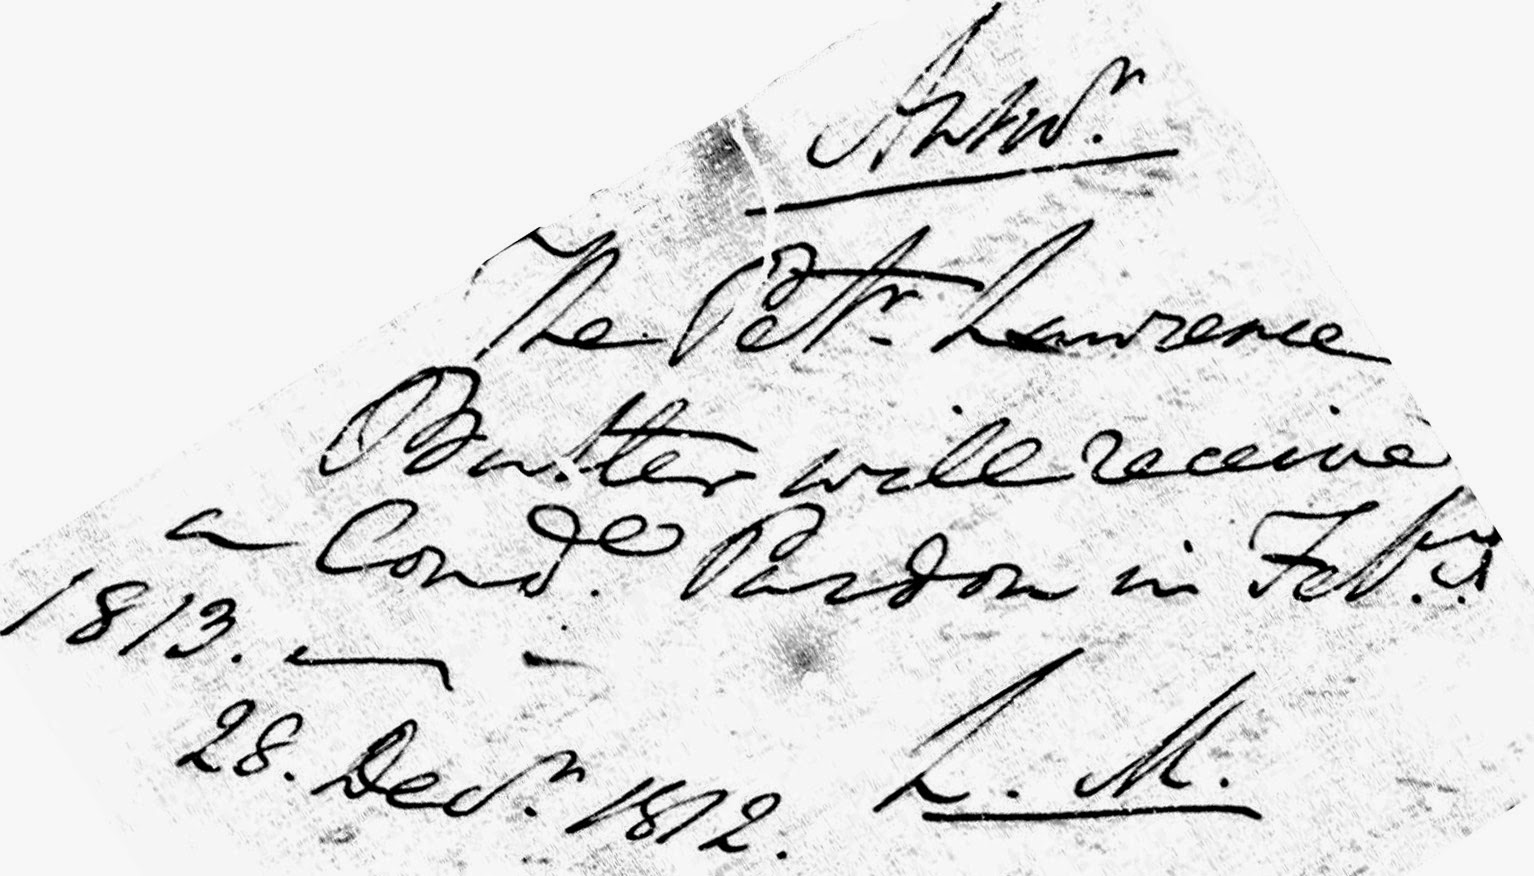 Answr.
The Petr. Lawrence
Butler will receive
a Condl. Pardon in Feby.
1813.
28. Decr. 1812. L. M.